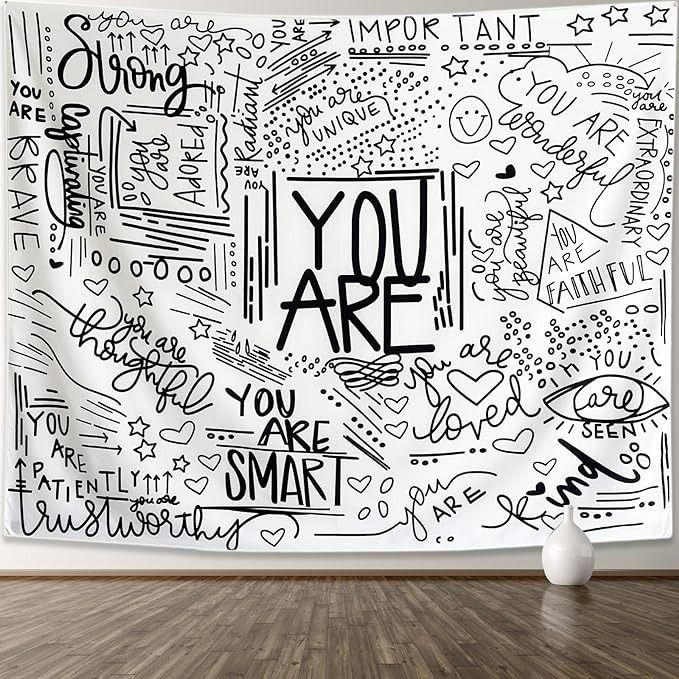 you are
Strong
YOU
ARE
BRAVE
Captivating
YOU ARE
you
are
ADORED
YOU
ARE
Radiant
YOU
ARE
IMPORTANT
you are
UNIQUE
YOU ARE
wonderful
you
are
EXTRAORDINARY
YOU
ARE
you are
beautiful
YOU
ARE
FAITHFUL
you are
thoughtful
YOU
ARE
SMART
you are
loved
YOU
are
SEEN
YOU
ARE
PATIENTLY
you are
trustworthy
you
ARE
kind